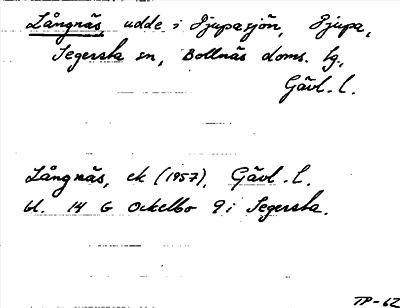 Långnäs, udde i Djupasjön, Djupa,
Segersta sn, Bollnäs doms. tg.,
Gävl. l.
Långnäs, ek (1957), Gävl. l.
bl. 14 G Ockelbo 9 i Segersta.
TP-62